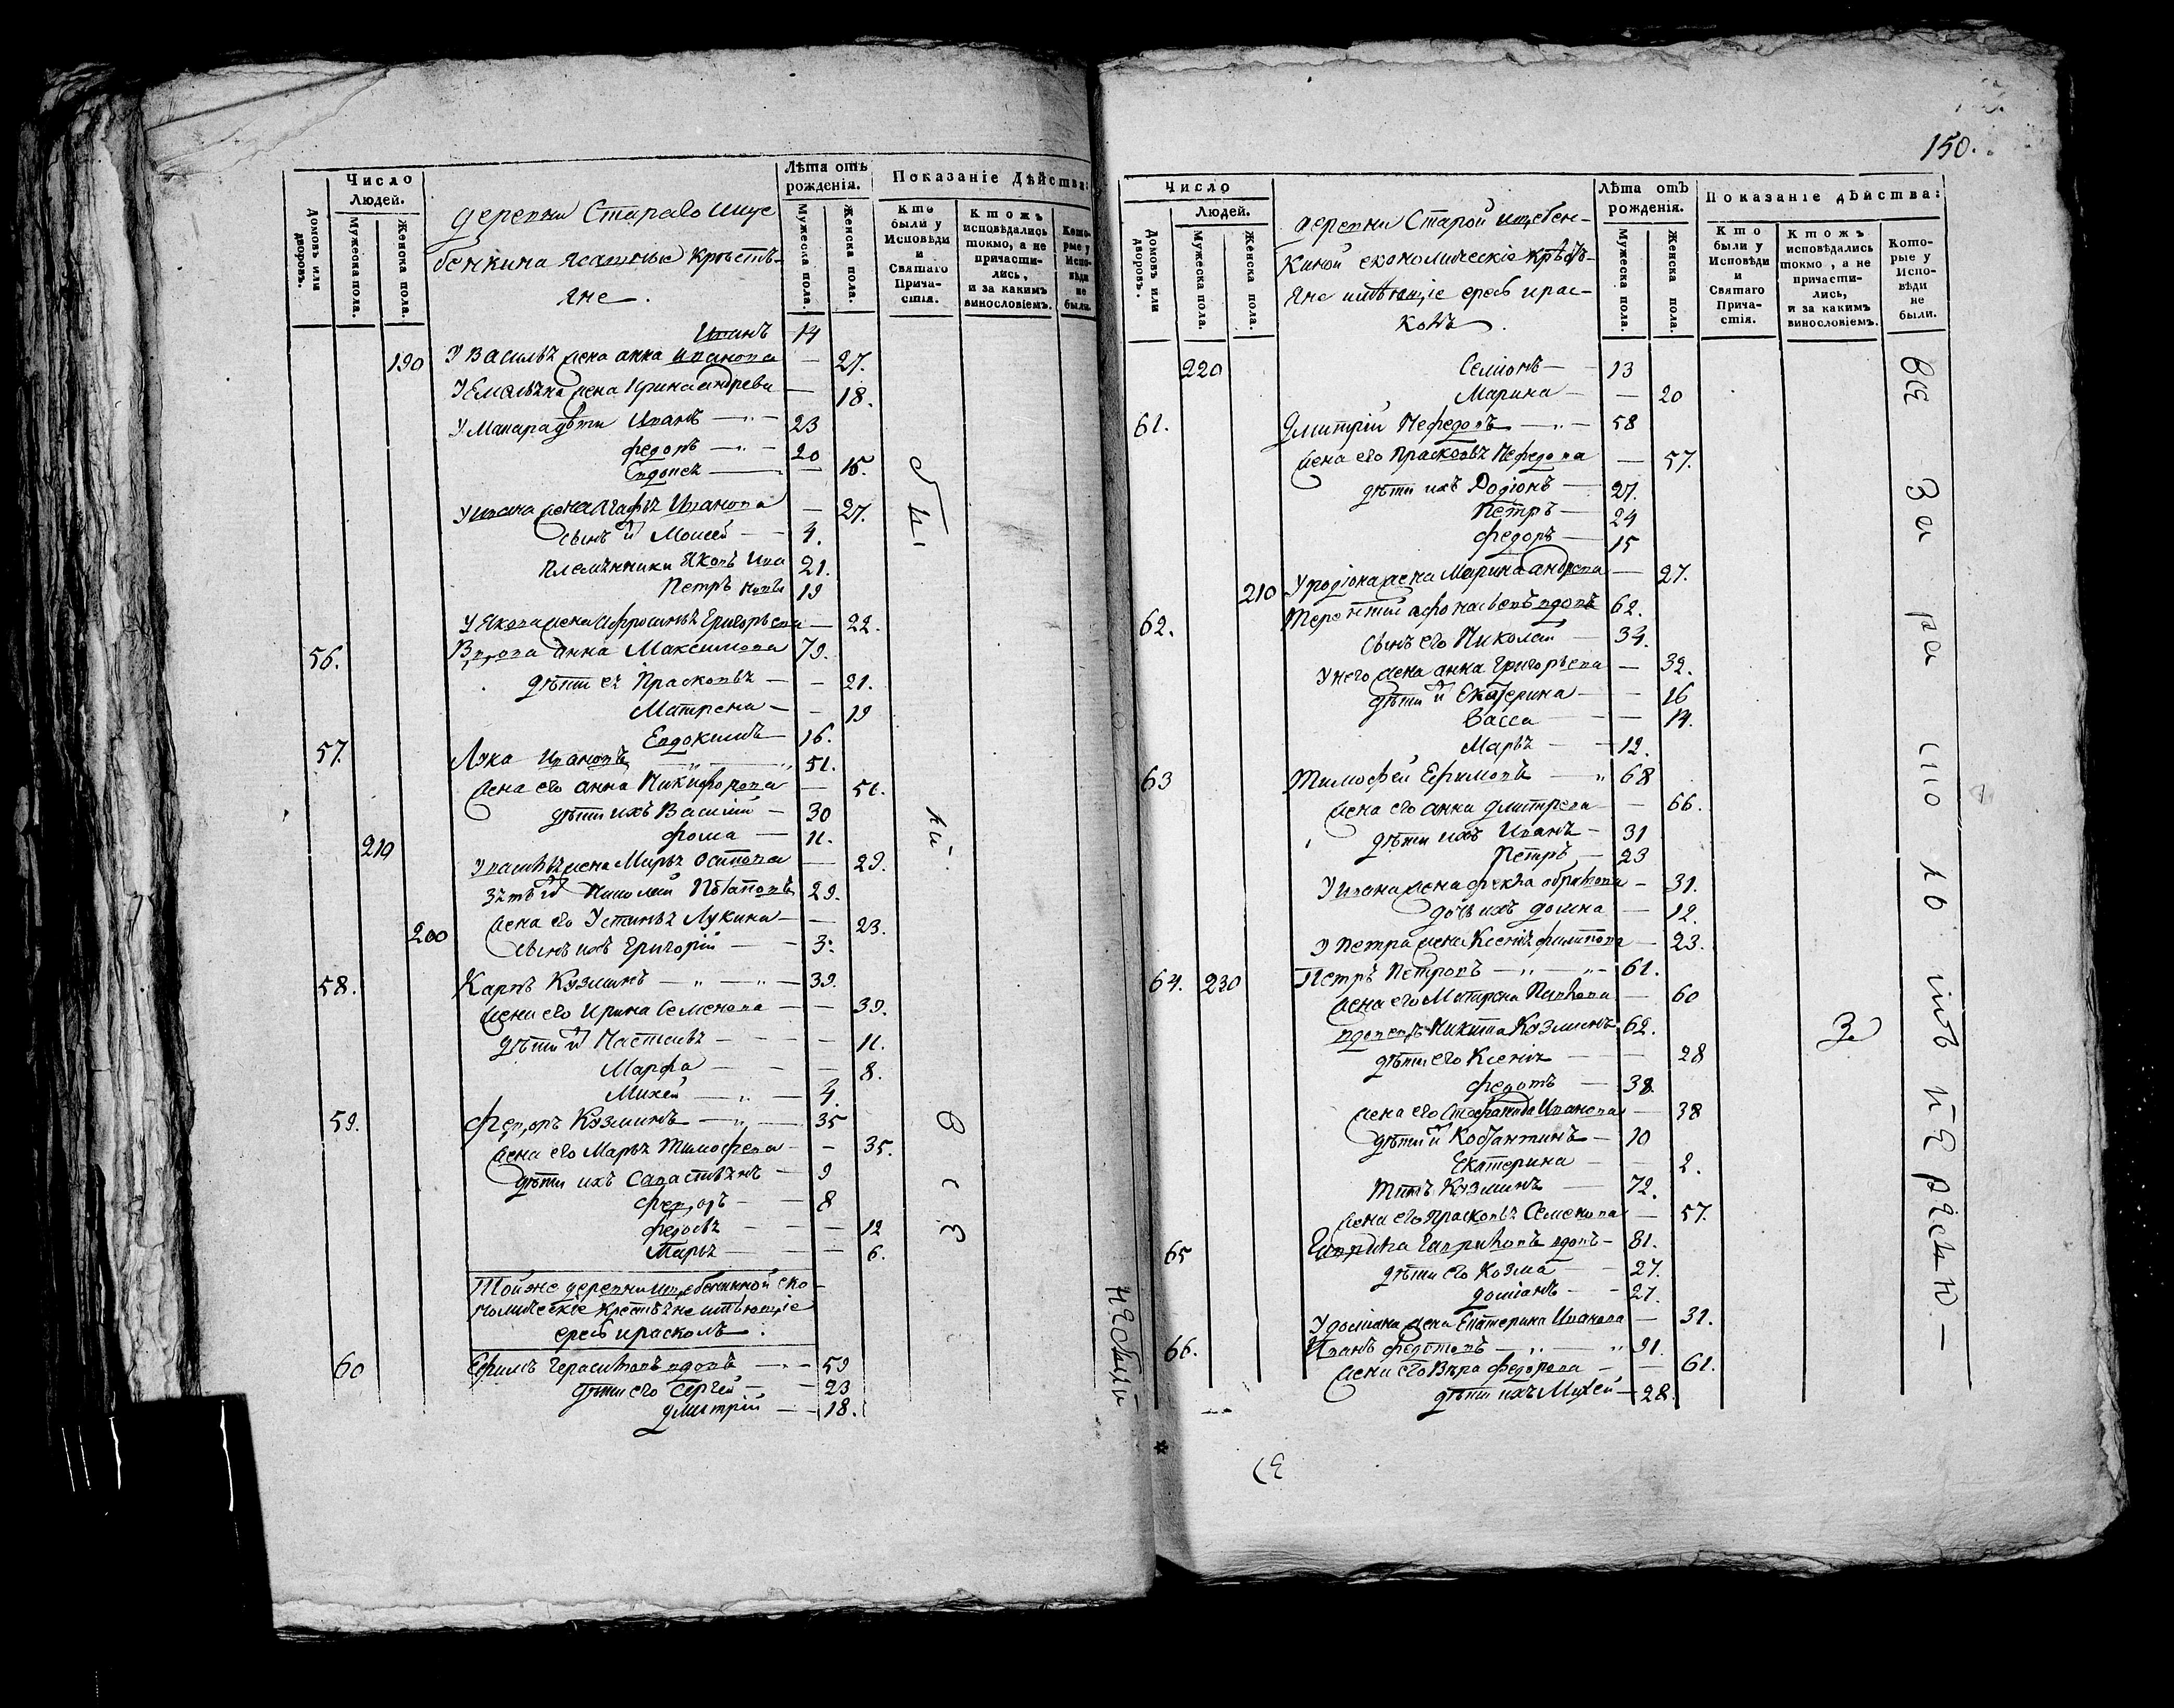 Число Людей.
Лѣта отъ рожденія.
Показаніе Дѣйства:
Домовъ или дворовъ.
Мужеска пола.
Женска пола.
деревни Стараго Ище
бенкина ясашные крестья
яне.
Мужеска пола.
Женска пола.
Кто были у Исповѣди и Святаго Прича- стія.
Ктожъ исповѣдались токмо, а не причасти- лись, и за какимъ винословіемъ.
Кото- рые у Испо- вѣди не были.
Иванъ 14
190 У Василья жена анна иванова — 27.
У Емельяна жена Ирина андрева — 18.
У Макара дѣти Иванъ 23
федоръ 20
Евдокея 15.
У ивана жена Агафья Иванова — 27.
сынъ их Моисей 4.
племянники Яковъ Ива 21.
Петръ новы 19
У Якова жена Афросинья Григорьева — 22.
56. Вдова анна Максимова 79.
дѣти ея Прасковья — 21.
Матрена — 19
Евдокимъ 16.
57. Лука Ивановъ 51.
жена его анна Никифорова — 51.
дѣти ихъ Василий 30
210 фома 11.
У василья жена Марья Осипова — 29.
зять их Николай Потаповъ 29.
жена его Устинья Лукина — 23.
200 сынъ ихъ Григорій 3.
58. Карпъ Козминъ 39.
жена его Ирина Семенова — 39.
дѣти их Настасья — 11.
Марфа — 8.
Михей 4.
59. Федоръ Козминъ 35
жена его Марья Тимофеева — 35.
дѣти ихъ Савастьянъ 9
федоръ 8
федосья — 12
Марья — 6.
Той же деревни ищебенкиной еко
номическіе крестьяне имѣющіе
ересь и расколъ.
60 Ефимъ Герасимовъ вдовъ 59
дѣти его Сергей 23
Дмитрій 18.
небыли
150.
Число Людей.
Лѣта отъ рожденія.
Показаніе дѣйства:
Домовъ или дворовъ.
Мужеска пола.
Женска пола.
деревни Старой ищебен-
киной економическіе крестья-
яне имѣющіе ересь ирас-
колъ.
Мужеска пола.
Женска пола.
Кто были у Исповѣди и Святаго Прича- стія.
Ктожъ исповѣдались токмо, а не причасти- лись, и за какимъ винословіемъ.
Кото- рые у Испо- вѣди не были.
220 Семіонъ 13
Марина — 20
61. Дмитрій Нефедовъ 58
жена его Прасковья Нефедова — 57.
дѣти ихъ Родіонъ 27.
Петръ 24
федоръ 15
210 У родіона жена Марина андрева — 27.
62. Терентій афонасьевъ вдовъ 62.
сынъ его Николай 34.
У него жена анна Григорьева — 32.
дѣти их Екатерина — 16
Васса — 14.
Марья 12.
63 Тимофей Ефимовъ 68
жена его анна дмитрева — 66.
дѣти ихъ Иванъ 31
Петръ 23
У ивана жена фекла — 31.
дочь ихъ домна — 12.
У Петра жена Ксенія филипова — 23.
64. 230 Петръ Петровъ 61.
жена его Матрена — 60
вдовецъ Никита Козминъ 62.
дѣти его Ксенія — 28
федотъ 38.
жена его Стефанида Иванова — 38
дѣти их Костантинъ 10
Екатерина — 2.
Титъ Козминъ 72.
жена его Прасковья Семенова — 57.
65 Гаврила Гавриловъ вдовъ 81.
дѣти его Козма 27.
доміанъ 27.
У доміана жена Екатерина Иванова — 31.
66. Иванъ федотовъ 91.
жена его Вѣра федорова — 61.
дѣти ихъ Михей 28.